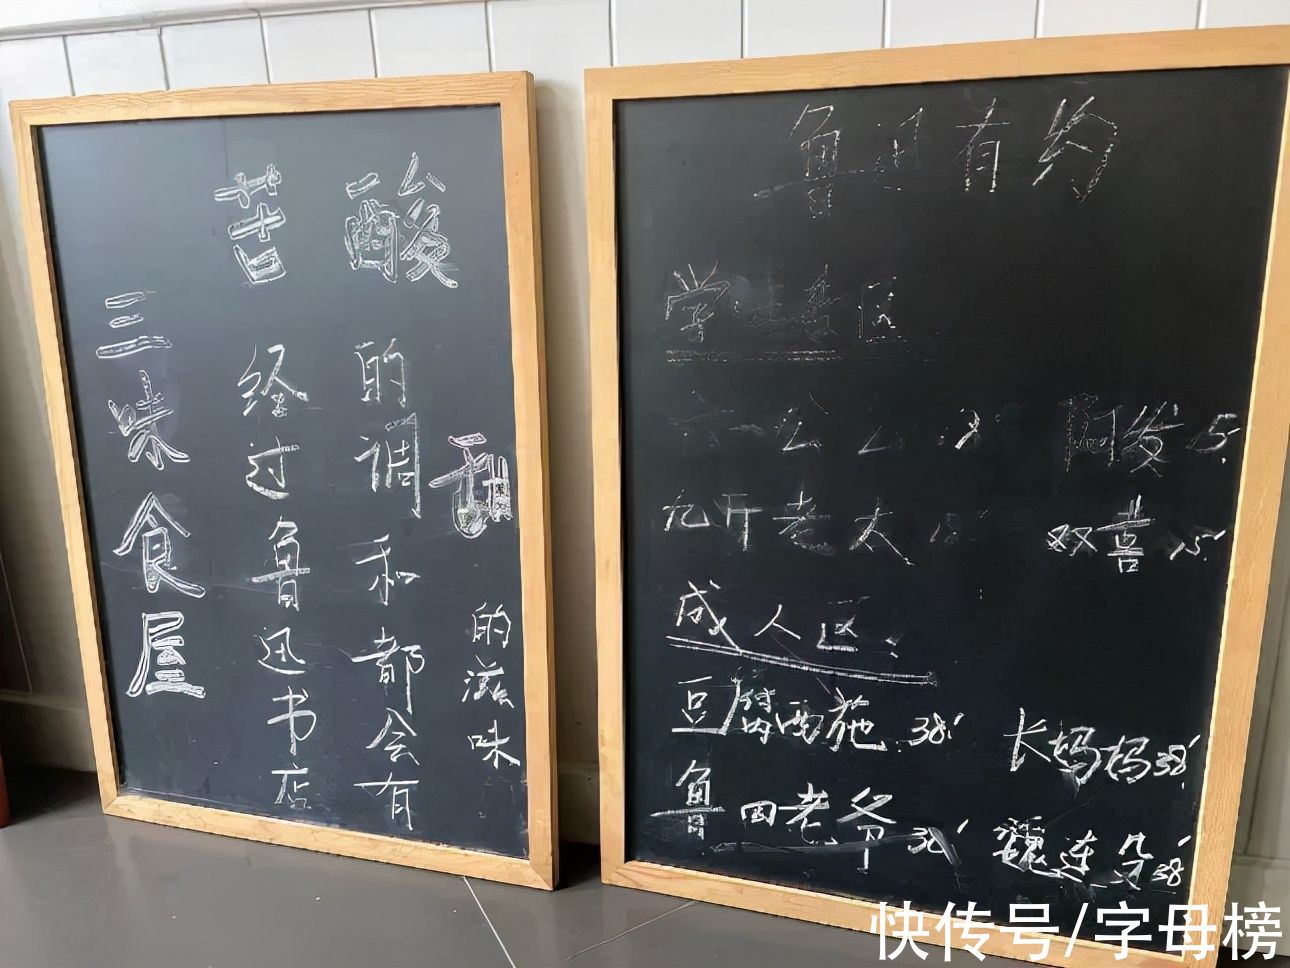 三味食屋
苦 经过鲁迅书店
酸 的调和都会有
甜 的滋味
鲁迅有约
学 区
六一公公 阿发 15
九斤老太 双喜 15'
成人区：
豆腐西施 38' 长妈妈 38'
鲁四老爷 38' 魏连殳 38'
快传号/字母榜